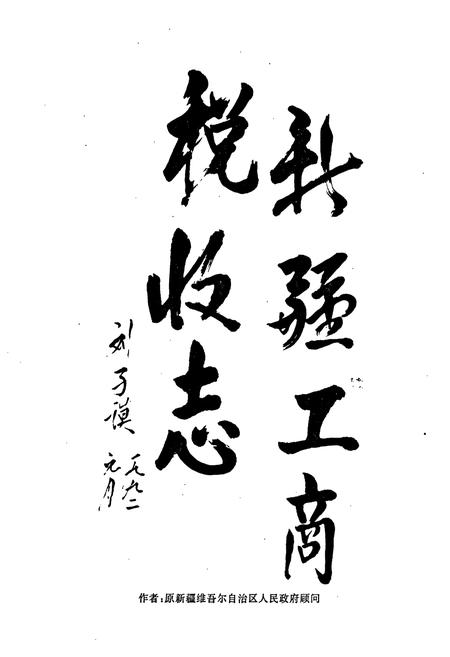 新疆工商
税收志
刘子谟
一九九二
元月
作者：原新疆维吾尔自治区人民政府顾问